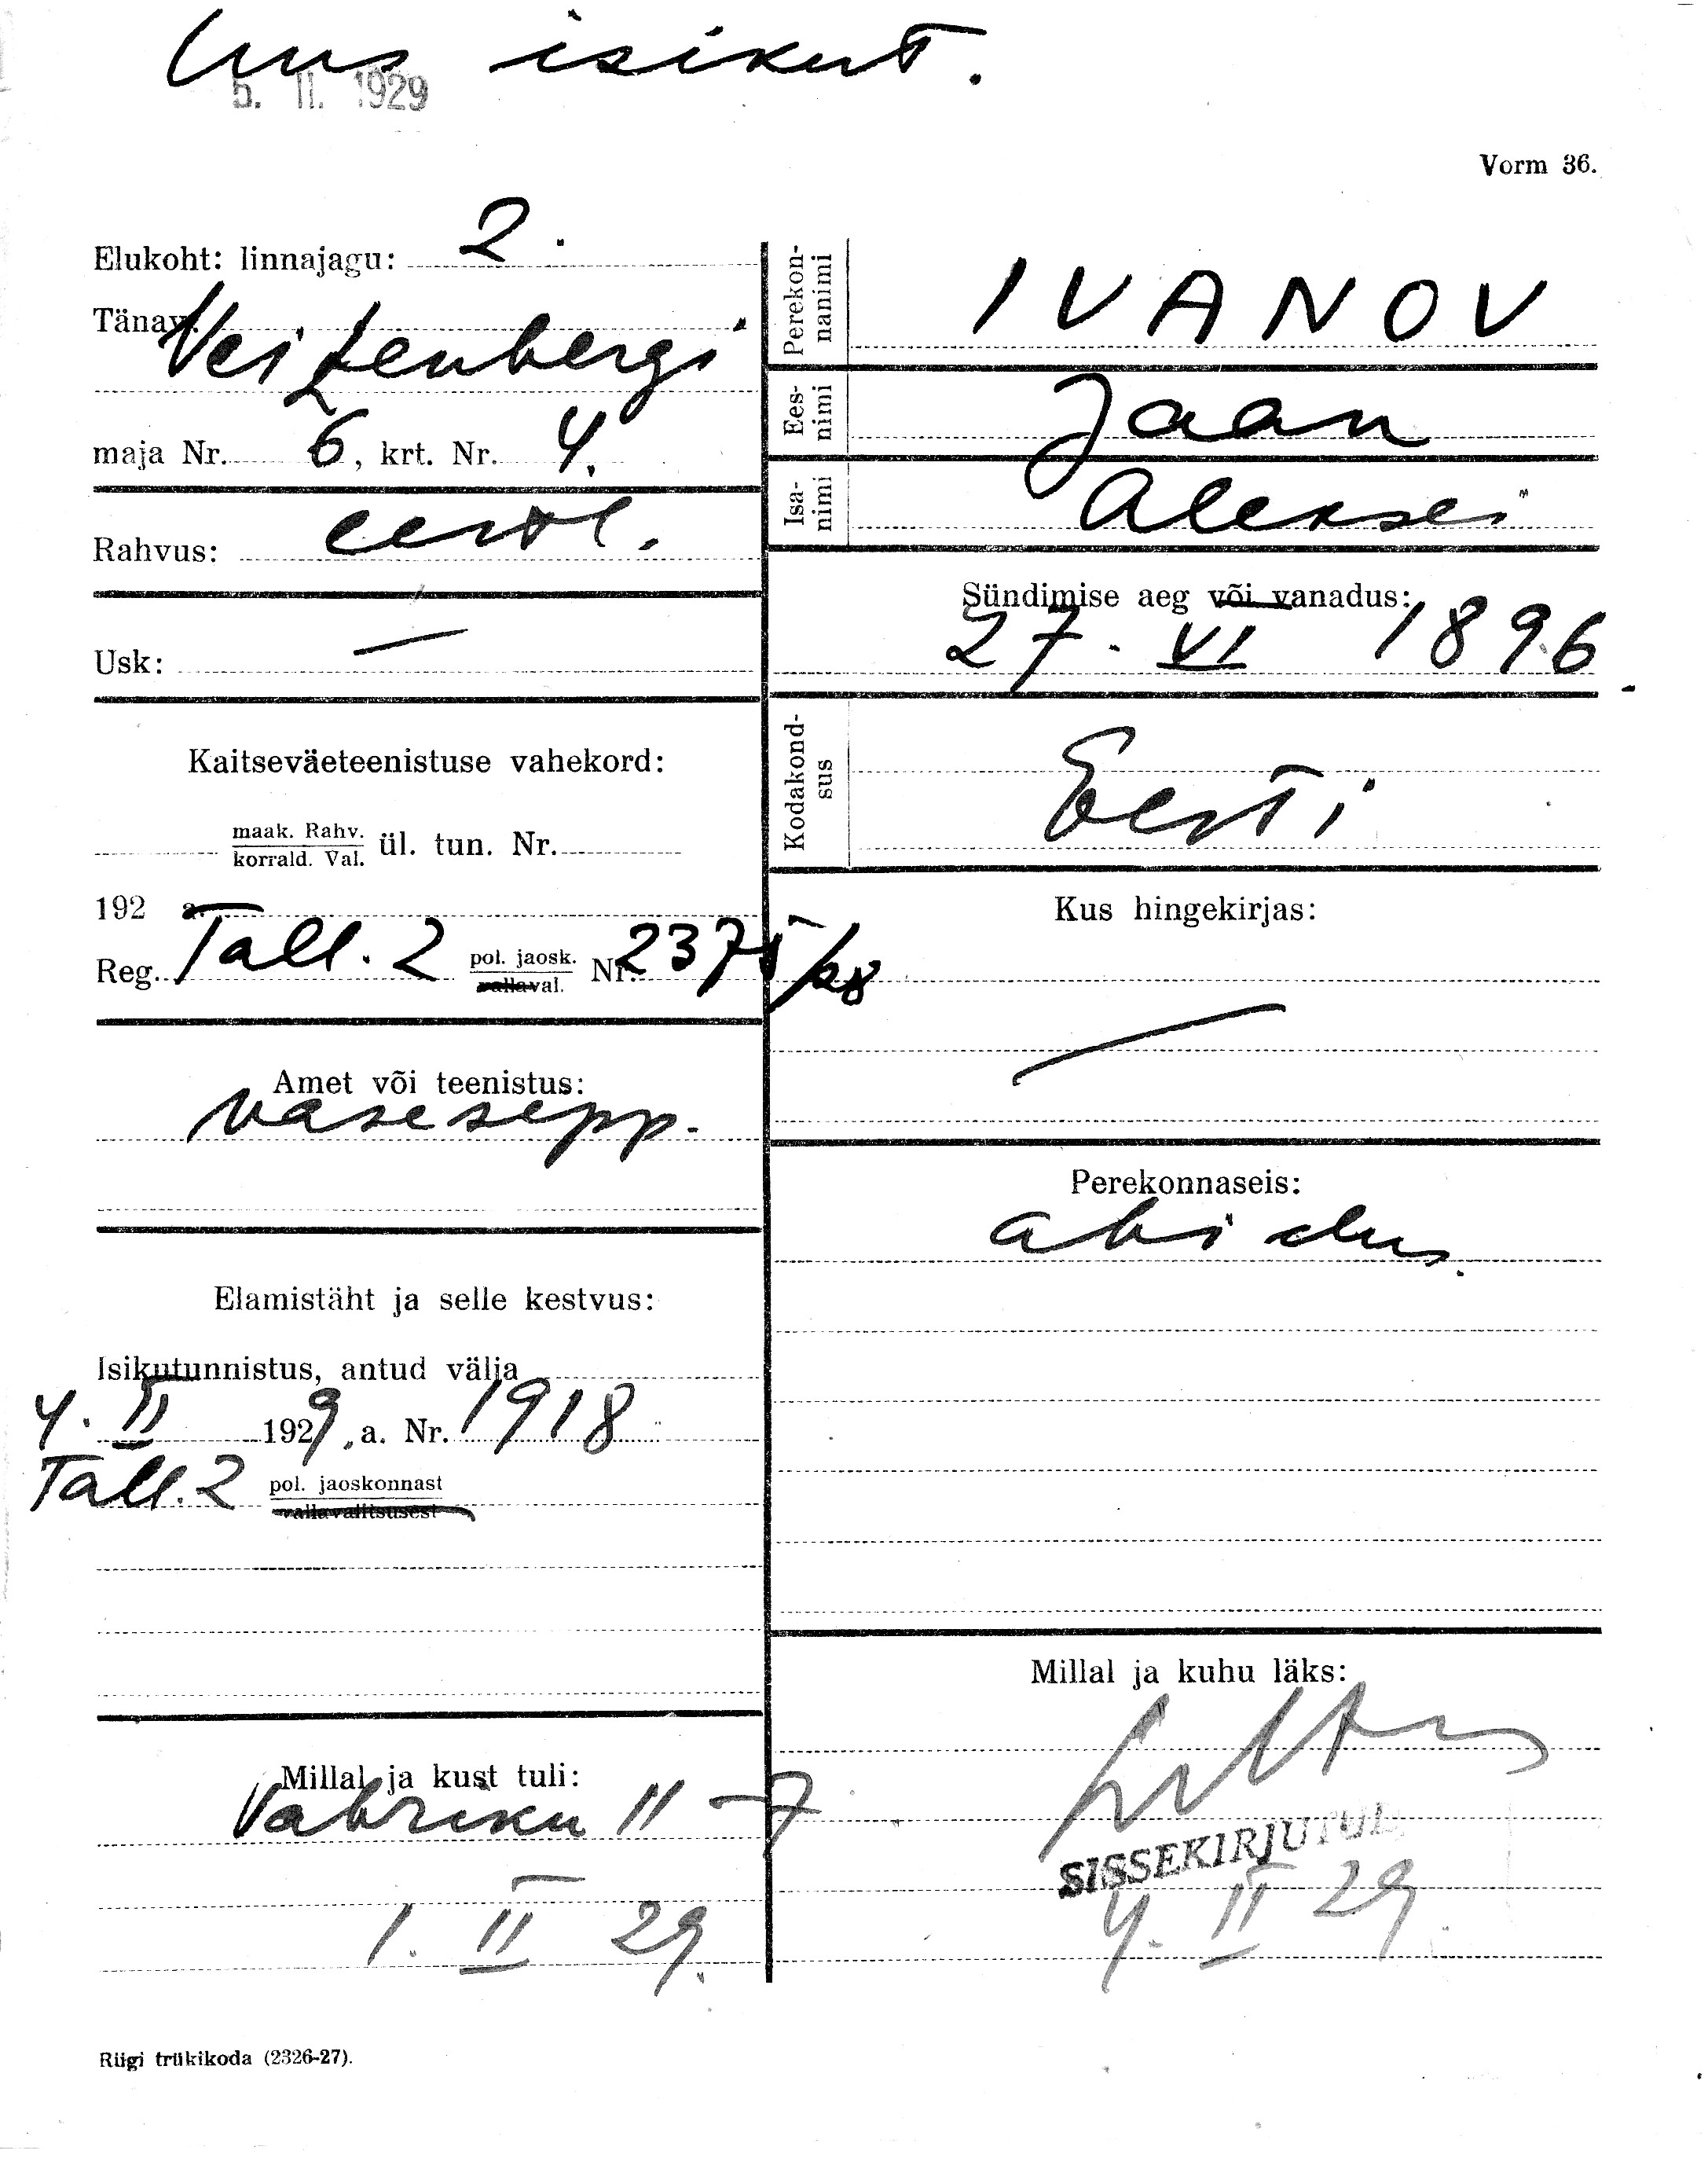 Uus isikut.
5. II. 1929
Vorm 36.
Elukoht: linnajagu: 2.
Tänav: Veizenbergi
maja Nr. 6, krt. Nr. 4.
Rahvus: eestl.
Usk: —
Kaitseväeteenistuse vahekord:
maak. Rahv.
korrald. Val. ül. tun. Nr.
192 a.
Reg. Tall. 2 pol. jaosk. Nr. 2375/28
vallaval.
Amet või teenistus:
vasesepp.
Elamistäht ja selle kestvus:
Isikutunnistus, antud välja
4. II 1929 a. Nr. 1918
Tall. 2 pol. jaoskonnast
vallavalitsusest
Millal ja kust tuli:
Vabriku 11 – 7
1. II 29.
Perekon-
nanimi
IVANOV
Ees-
nimi
Jaan
Isa-
nimi
Aleksei
Sündimise aeg või vanadus:
27. VI 1896
Kodakond-
sus
Eesti
Kus hingekirjas:
—
Perekonnaseis:
abielus.
Millal ja kuhu läks:
SISSEKIRJUTUD
4. II 29.
Riigi trükikoda (2326-27).